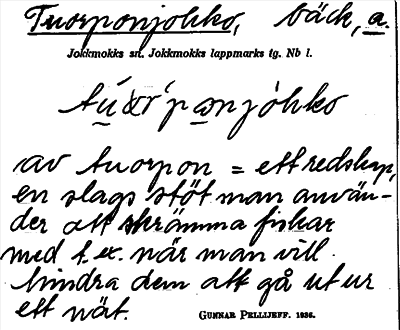 Tuorponjokko, bäck, a.
Jokkmokks sn. Jokkmokks lappmarks tg. Nb l.
av tuorpon = ett redskap,
en slags stöt man använ-
der att skrämma fiskar
med t. ex. när man vill
hindra dem att gå ut ur
ett nät.
GUNNAR PELLIJEFF. 1936.